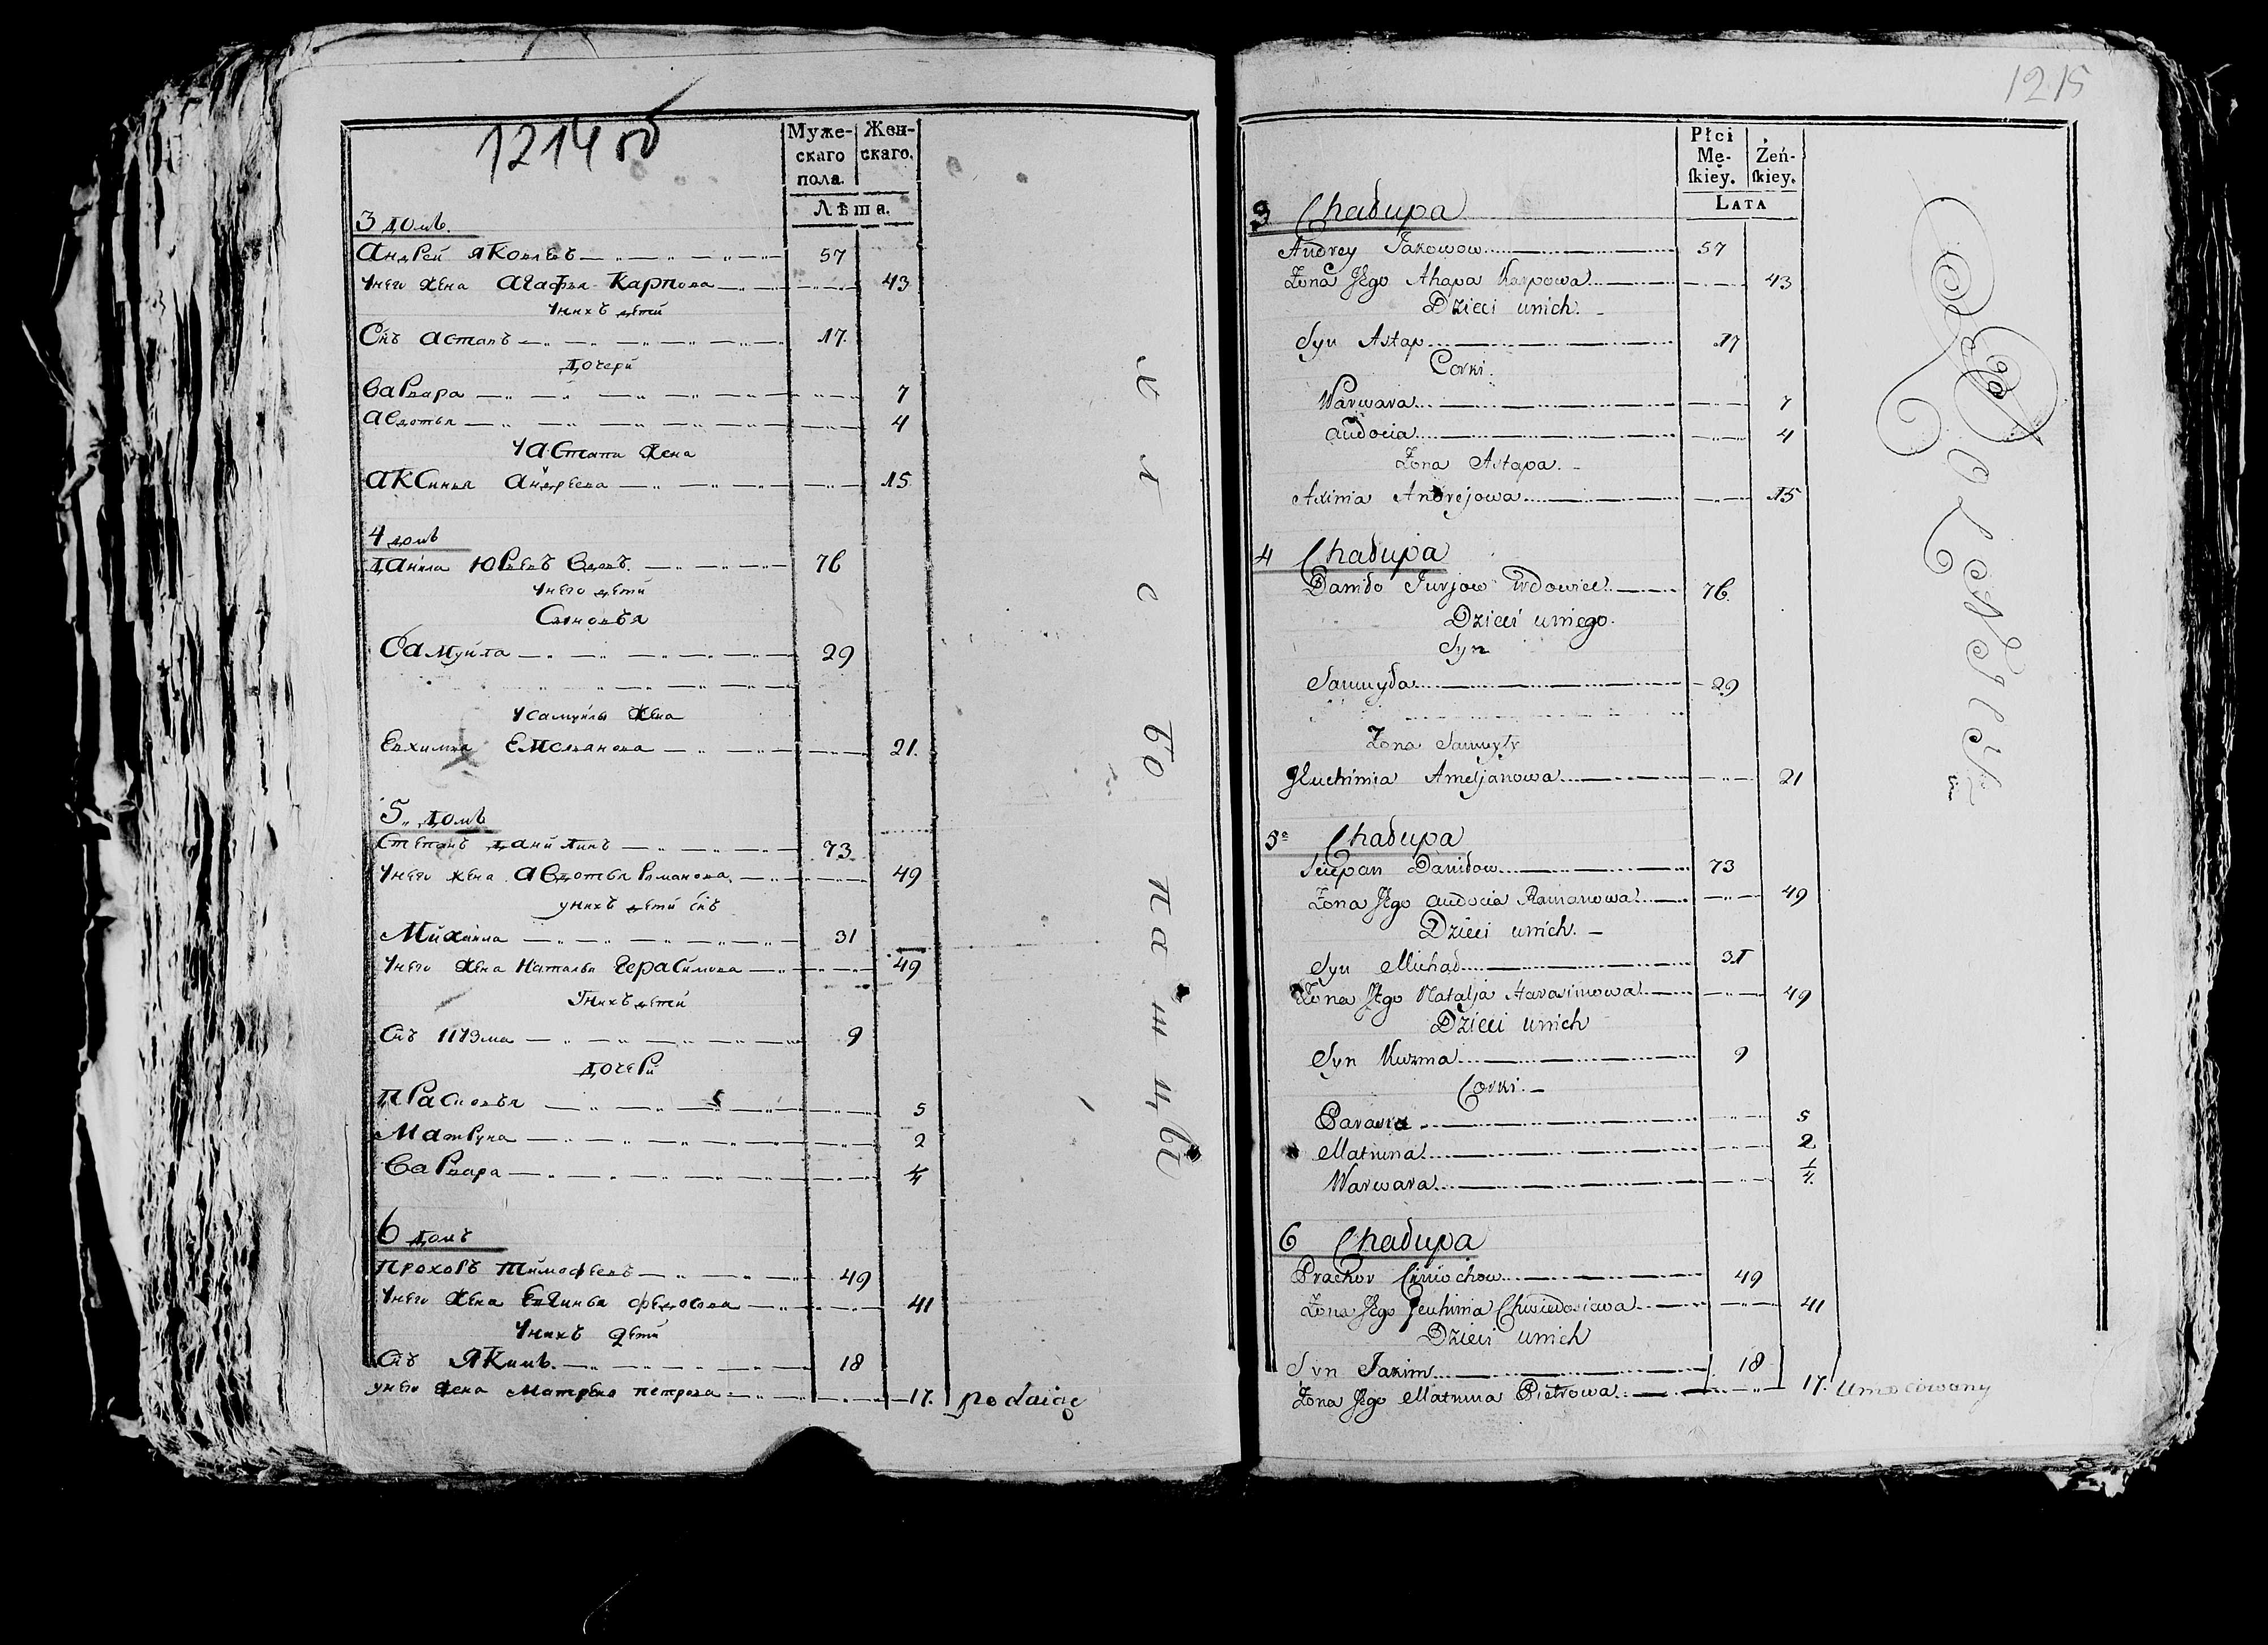 1214 об
Муже-
скаго
пола.
Жен-
скаго.
Лѣта.
3 домъ.
Андрей Яковлевъ 57
Унего жена Агафья Карпова 43
Унихъ дети
Снъ Астапъ 17.
Дочери
Варвара 7
Авдотья 4
У Астапа жена
Аксинья Андреева 15
4 домъ
Данила Юрьевъ Вдовъ. 76
Унего дети
Сыновья
Самуйла 29
У самуйлы жена
Евхимия Емельянова 21.
5. домъ
Степанъ Данилинъ 73
Унего жена Авдотья Романова 49
унихъ дети снъ
Михайла 31
Унего жена Наталья Герасимова 49
Унихъ дети
Снъ Кузма 9
Дочери
Прасковья 5
Матруна 2
Варвара 1/4
6 домъ
Прохоръ Тимофеевъ 49
Унего жена Евгинья Федосова 41
Унихъ дети
Снъ Якимъ. 18
унего жена Матрена Петрова 17. podaiąc
1215
Płci
Mę-
ſkiey.
Żeń-
ſkiey.
LATA
3 Chałupa
Andrey Jakowow 57
Żona Jego Ahapa Karpowa 43
Dzieci unich.
Syn Astap 17
Corki.
Warwara 7
Audocia 4
Żona Astapa.
Axinia Andrejowa 15
4 Chałupa
Daniło Jurjow Wdowiec 76.
Dzieci uniego.
Syn
Samuyła 29
Żona Samuyły
Jeuchimia Ameljanowa 21
5a Chałupa
Sciepan Daniłow 73
Żona Jego Audocia Ramanowa 49
Dzieci unich.
Syn Michał 31
Żona Jego Natalja Harasimowa 49
Dzieci unich
Syn Kuzma 9
Corki.
Parasia 5
Matruna 2
Warwara 1/4
6 Chałupa
Prachor Cimochow 49
Żona Jego Jeuhinia Chwiedosiawa 41
Dzieci unich
Syn Jakim 18
Żona Jego Matruna Pietrowa 17. Umocowany